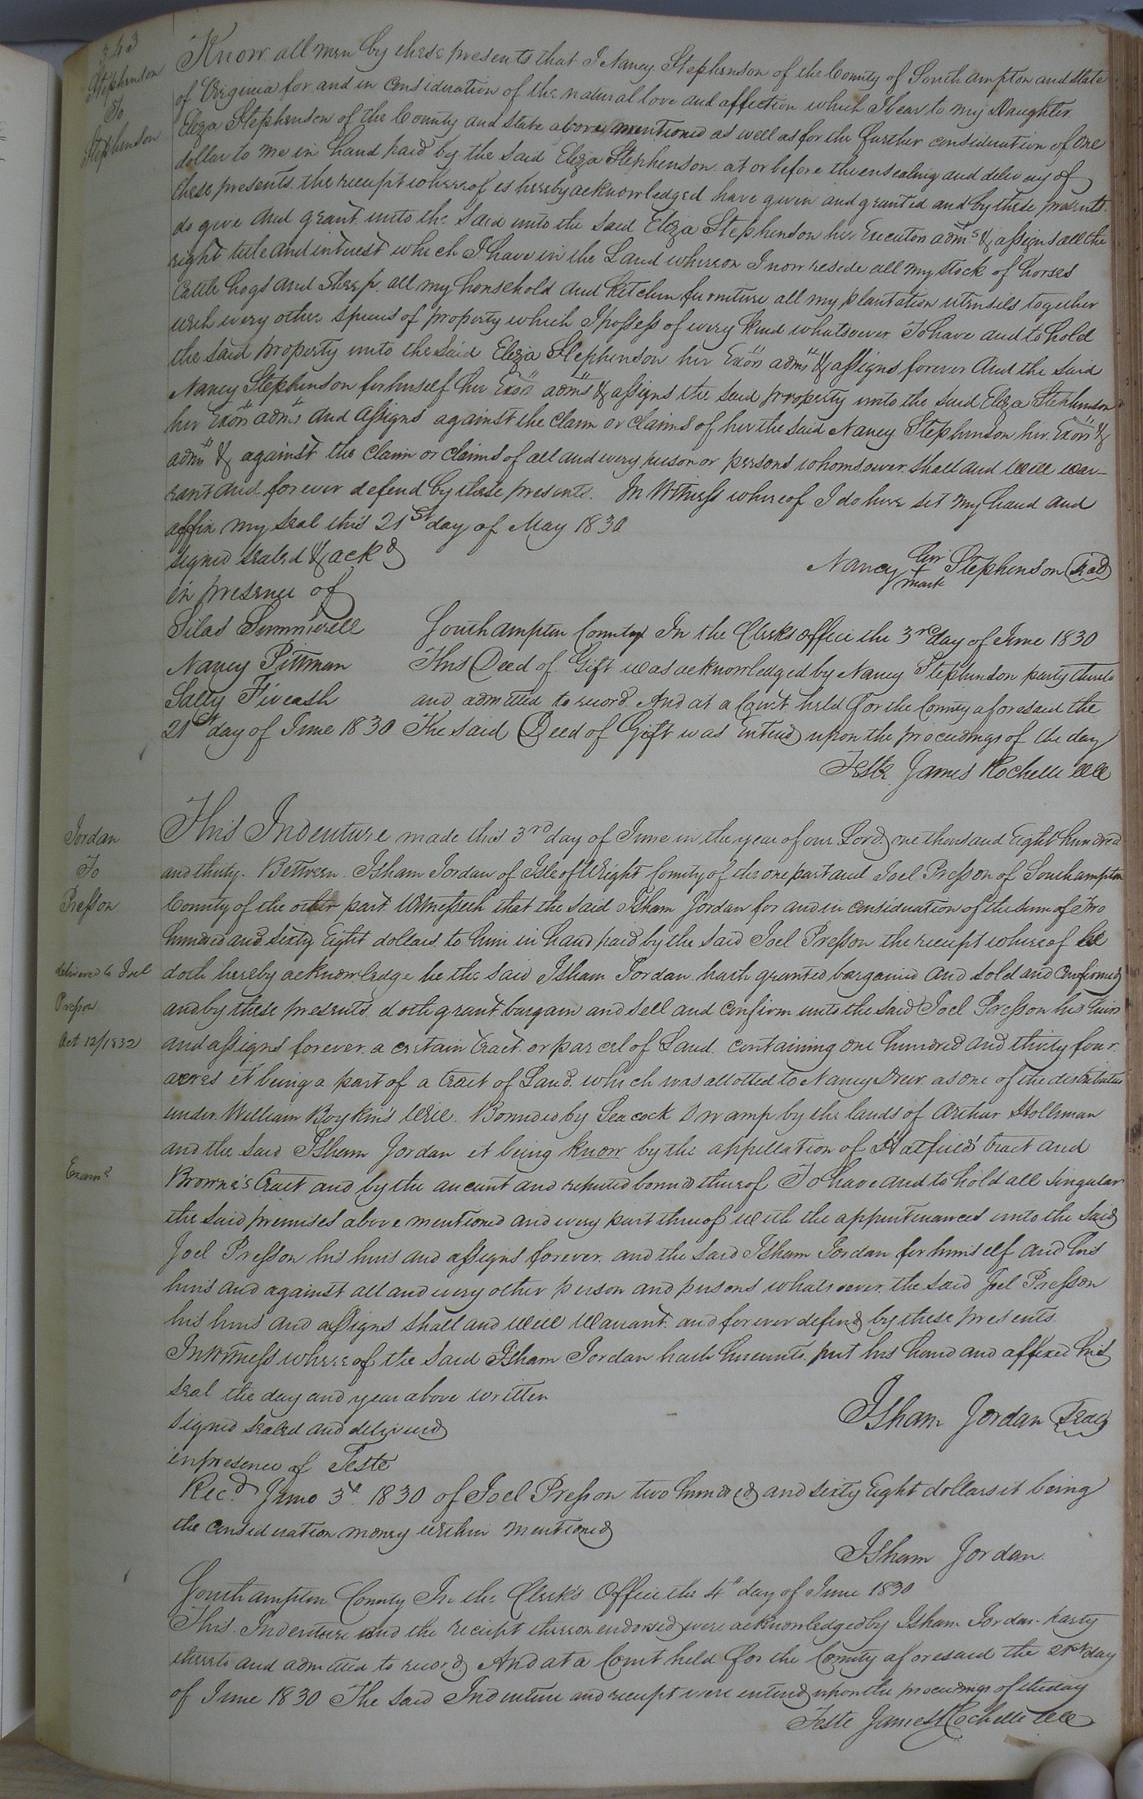 343
Stephenson
To
Stephenson
Know all men by these presents that I Nancy Stephenson of the County of Southampton and state
of Virginia for and in consideration of the natural love and affection which I bear to my Daughter
Eliza Stephenson of the County and state above mentioned as well as for the further consideration of One
dollar to me in hand paid by the said Eliza Stephenson at or before the ensealing and delivery of
these presents the receipt whereof is hereby acknowledged have given and granted and by these presents
do give and grant unto the said unto the said Eliza Stephenson her Executors adm.s & assigns all the
right title and interest which I have in the Land whereon I now reside all my stock of horses
Cattle hogs and Sheep all my household and Kitchen furniture all my plantation utensils together
with every other species of property which I possess of every kind whatsoever To have and to hold
the said property unto the said Eliza Stephenson her Exors adms & assigns forever And the said
Nancy Stephenson for herself her Exors adms & assigns the said property unto the said Eliza Stephenson
her Exors adms and assigns against the Claim or Claims of her the said Nancy Stephenson her Exors &
adms & against the claim or claims of all and every person or persons whomsoever shall and will war-
rant and forever defend by these presents. In Witness whereof I do here set my hand and
affix my seal this 21st day of May 1830
signed sealed & ackd
Nancy her + mark Stephenson Seal
in presence of
Silas Summerell
Nancy Pittman
Sally Fiveash
Southampton County In the Clerks office the 3rd day of June 1830
This Deed of Gift was acknowledged by Nancy Stephenson party thereto
and admitted to record And at a Court held for the County aforesaid the
21st day of June 1830 The said Deed of Gift was Entered upon the proceedings of the day
Teste James Rochelle CC
Jordan
To
Presson
delivered to Joel
Presson
Oct 12/1832
Examd
This Indenture made this 3rd day of June in the year of our Lord one thousand Eight hundred
and thirty. Between Isham Jordan of Isle of Wright County of the one part and Joel Presson of Southampton
County of the other part Witnesseth that the said Isham Jordan for and in consideration of the sum of Two
hundred and sixty Eight dollars to him in hand paid by the said Joel Presson the receipt whereof he
doth hereby acknowledge he the said Isham Jordan hath granted bargained and sold and confirmed
and by these presents doth grant bargain and sell and confirm unto the said Joel Presson his heirs
and assigns forever a certain Tract or parcel of Land containing one hundred and thirty four
acres it being a part of a tract of Land which was allotted to Nancy Drew as one of the distributees
under William Boykin's Will. Bounded by Seacock Swamp by the lands of Arthur Holleman
and the said Isham Jordan it being know by the appellation of Hatfield tract and
Browne's tract and by the ancient and reputed bounds thereof To have and to hold all singular
the said premises above mentioned and every part thereof with the appurtenances unto the said
Joel Presson his heirs and assigns forever. and the said Isham Jordan for himself and his
heirs and against all and every other person and persons whatsoever the said Joel Presson
his heirs and assigns shall and will Warrant and forever defend by these presents.
In witness whereof the said Isham Jordan hath hereunto put his hand and affixed his
seal the day and year above written
Isham Jordan Seal
signed sealed and delivered
in presence of Teste
Recd June 3d 1830 of Joel Presson two hundred and sixty Eight dollars it being
the consideration money within mentioned
Isham Jordan
Southampton County In the Clerk's Office the 4th day of June 1830
This Indenture and the receipt thereon endorsed were acknowledged by Isham Jordan party
thereto and admitted to record And at a Court held for the County aforesaid the 21st day
of June 1830 The said Indenture and receipt were entered upon the proceedings of the day
Teste James Rochelle CC